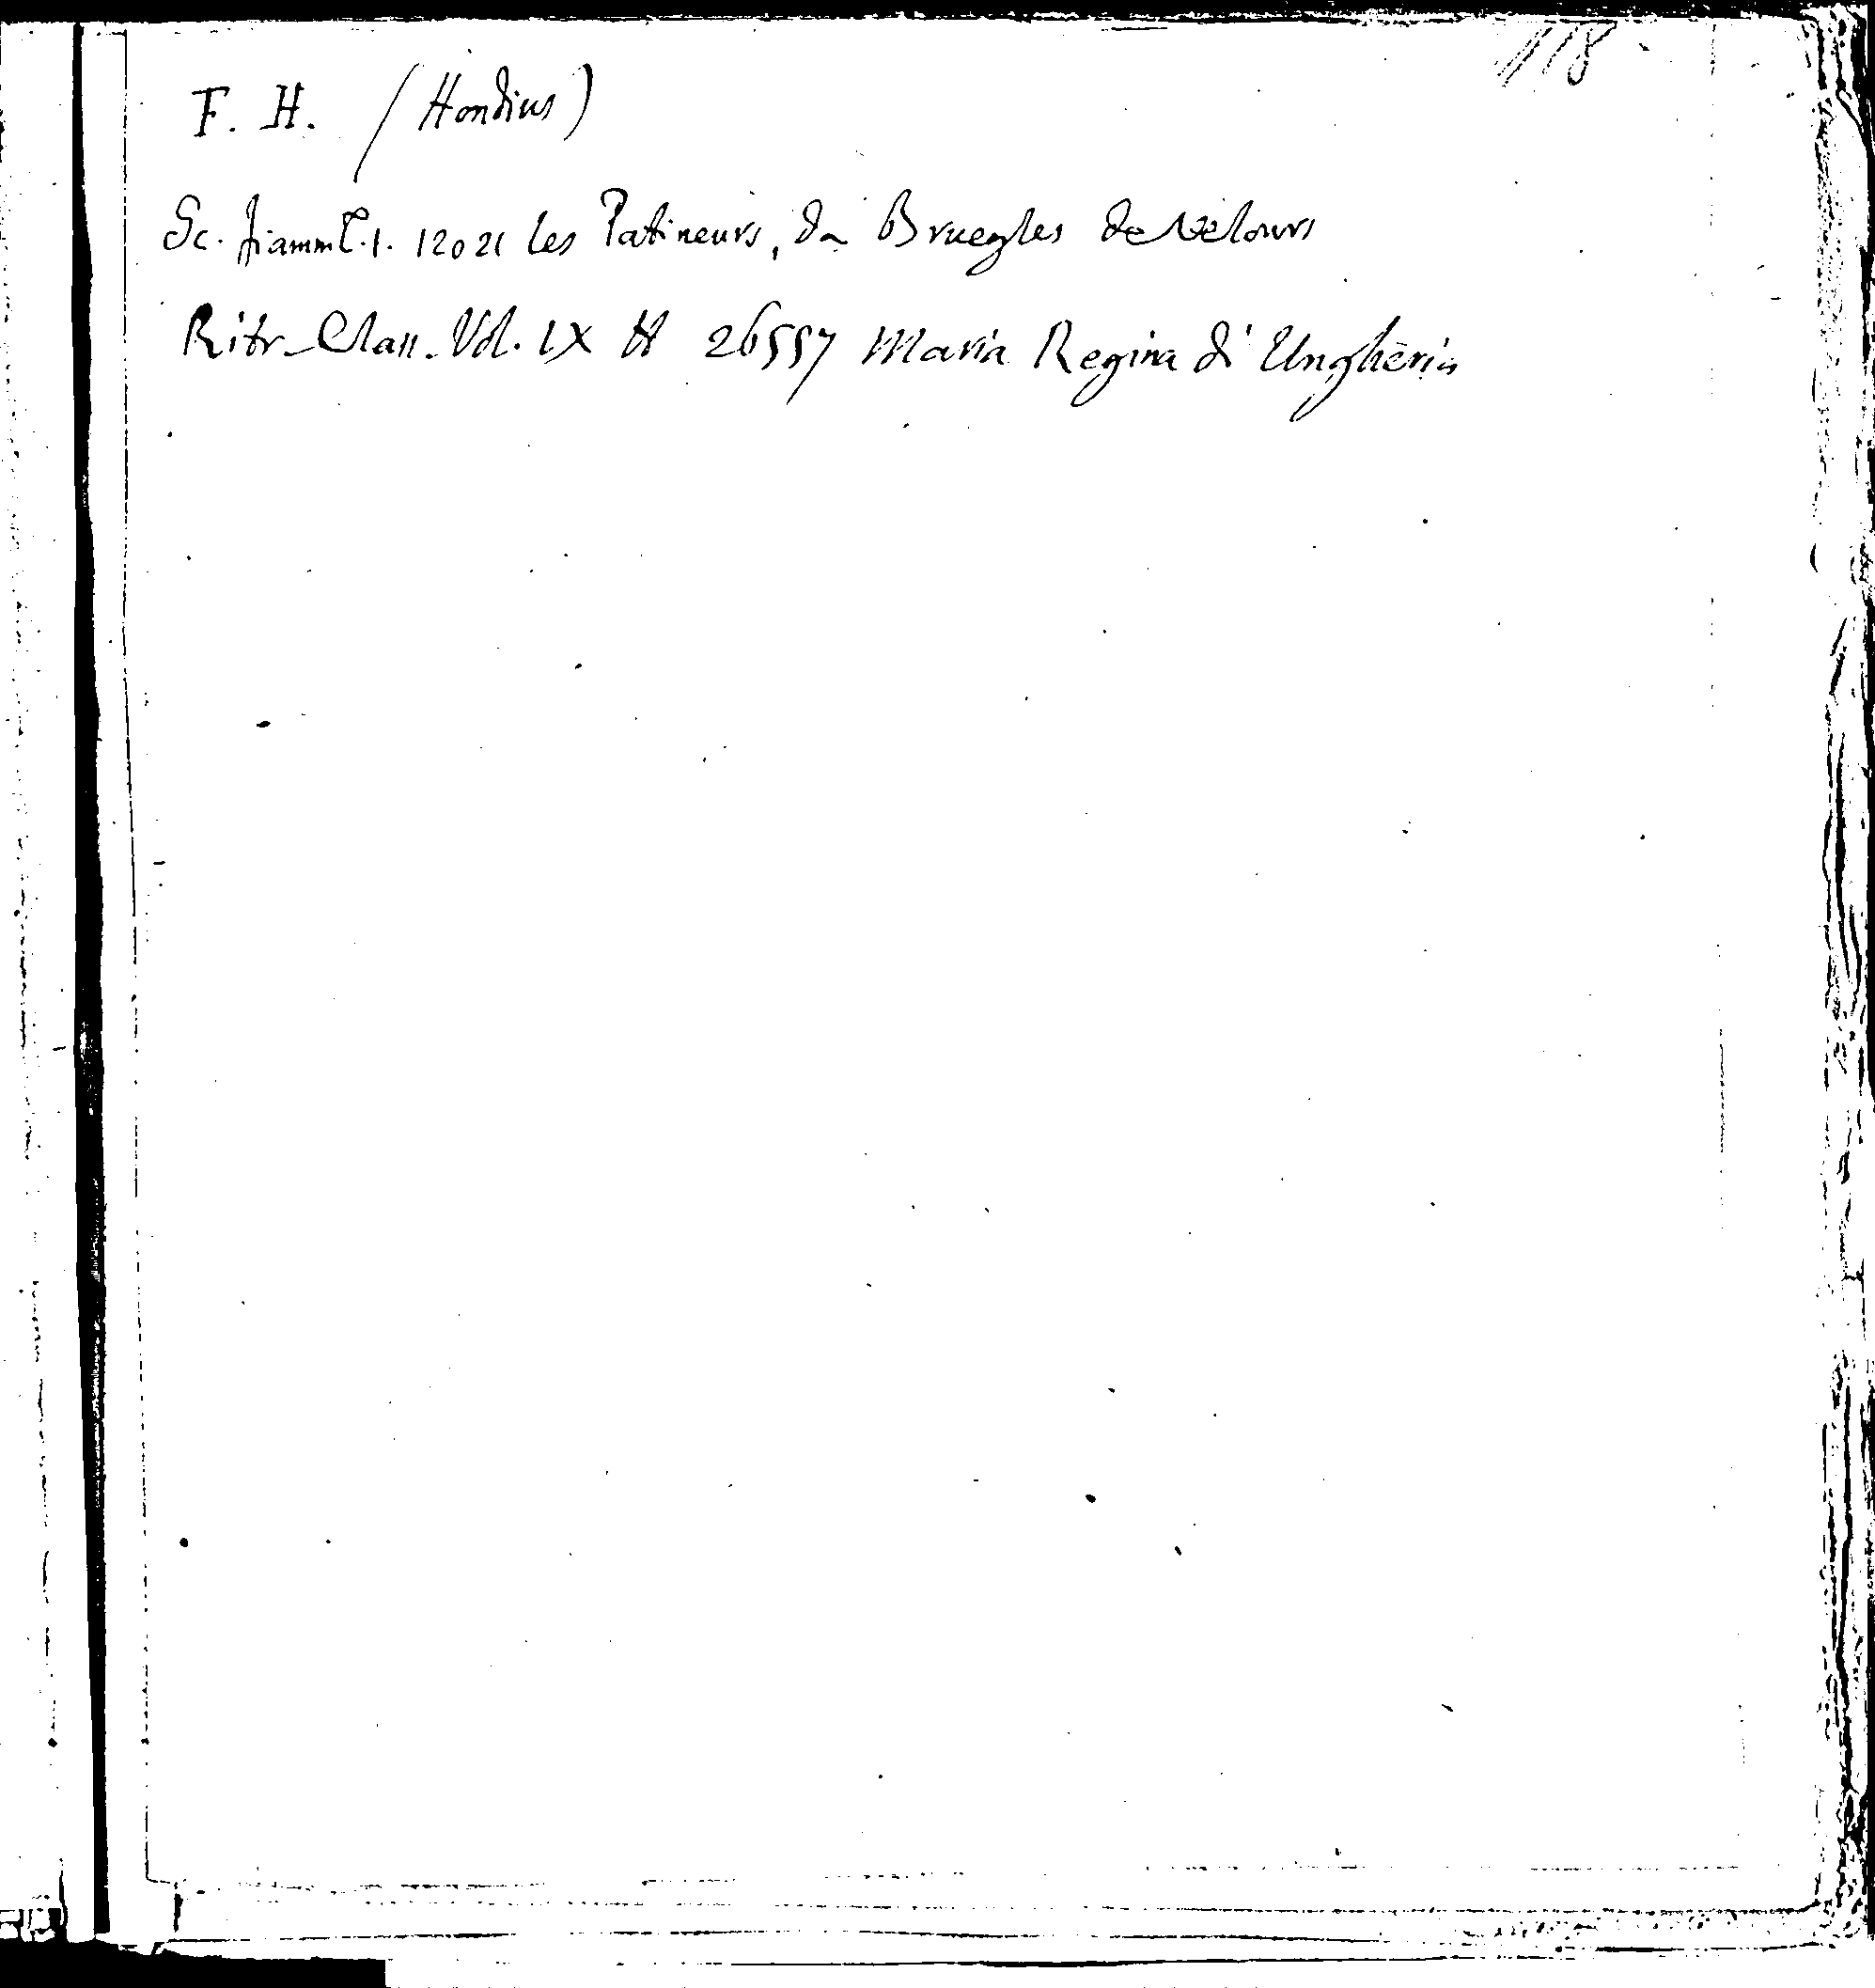 118
F. H. (Hondius)
Sc. fiamm C. 1. 12021 les Patineurs, da Bruegles de Velours
Ritr. Class. Vol. IX H 26557 Maria Regina di Ungheria